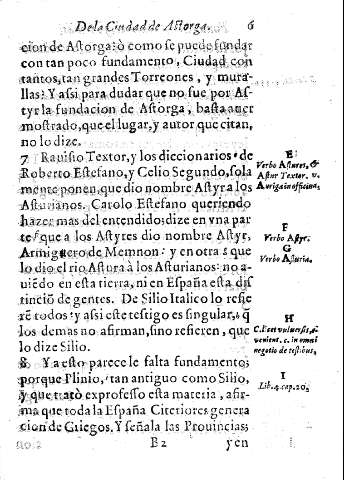 De la Ciudad de Astorga. 6
cion de Astorga: ò como se puede fundar
con tan poco fundamento, Ciudad con
tantos, tan grandes Torreones, y mura-
llas: Y assi para dudar que no fue por As-
tyr la fundacion de Astorga, basta auer
mostrado, que el lugar, y autor que citan,
no lo dize.
7 Rauisio Textor, y los diccionarios de
Roberto Estefano, y Celio Segundo, sola
mente ponen, que dio nombre Astyr a los
Asturianos. Carolo Estefano queriendo
hazer mas del entendido; dize en vna par
te que a los Astyres dio nombre Astyr,
Armiguero de Memnon: y en otra: que
lo dio el rio Astura à los Asturianos: no a-
uiẽdo en esta tierra, ni en España esta dis
tinciõ de gentes. De Silio Italico lo refie
rẽ todos: y assi este testigo es singular, q̃
los demas no afirman, sino refieren, que
lo dize Silio.
8 Y a esto parece le falta fundamento;
porque Plinio, tan antiguo como Silio,
y que tratò exprofesso esta materia, afir-
ma que toda la España Citerior es genera
cion de Griegos. Y señala las Prouincias;
B 2 yen
E
Verbo Astures, &
Astur Textor. v.
Auriga in officina,
F
Verbo Astyr.
G
Verbo Asturia.
H
C. licet vulversis,
venient. c. in omni
negotio de testibus,
I
Lib. 4. cap. 20,